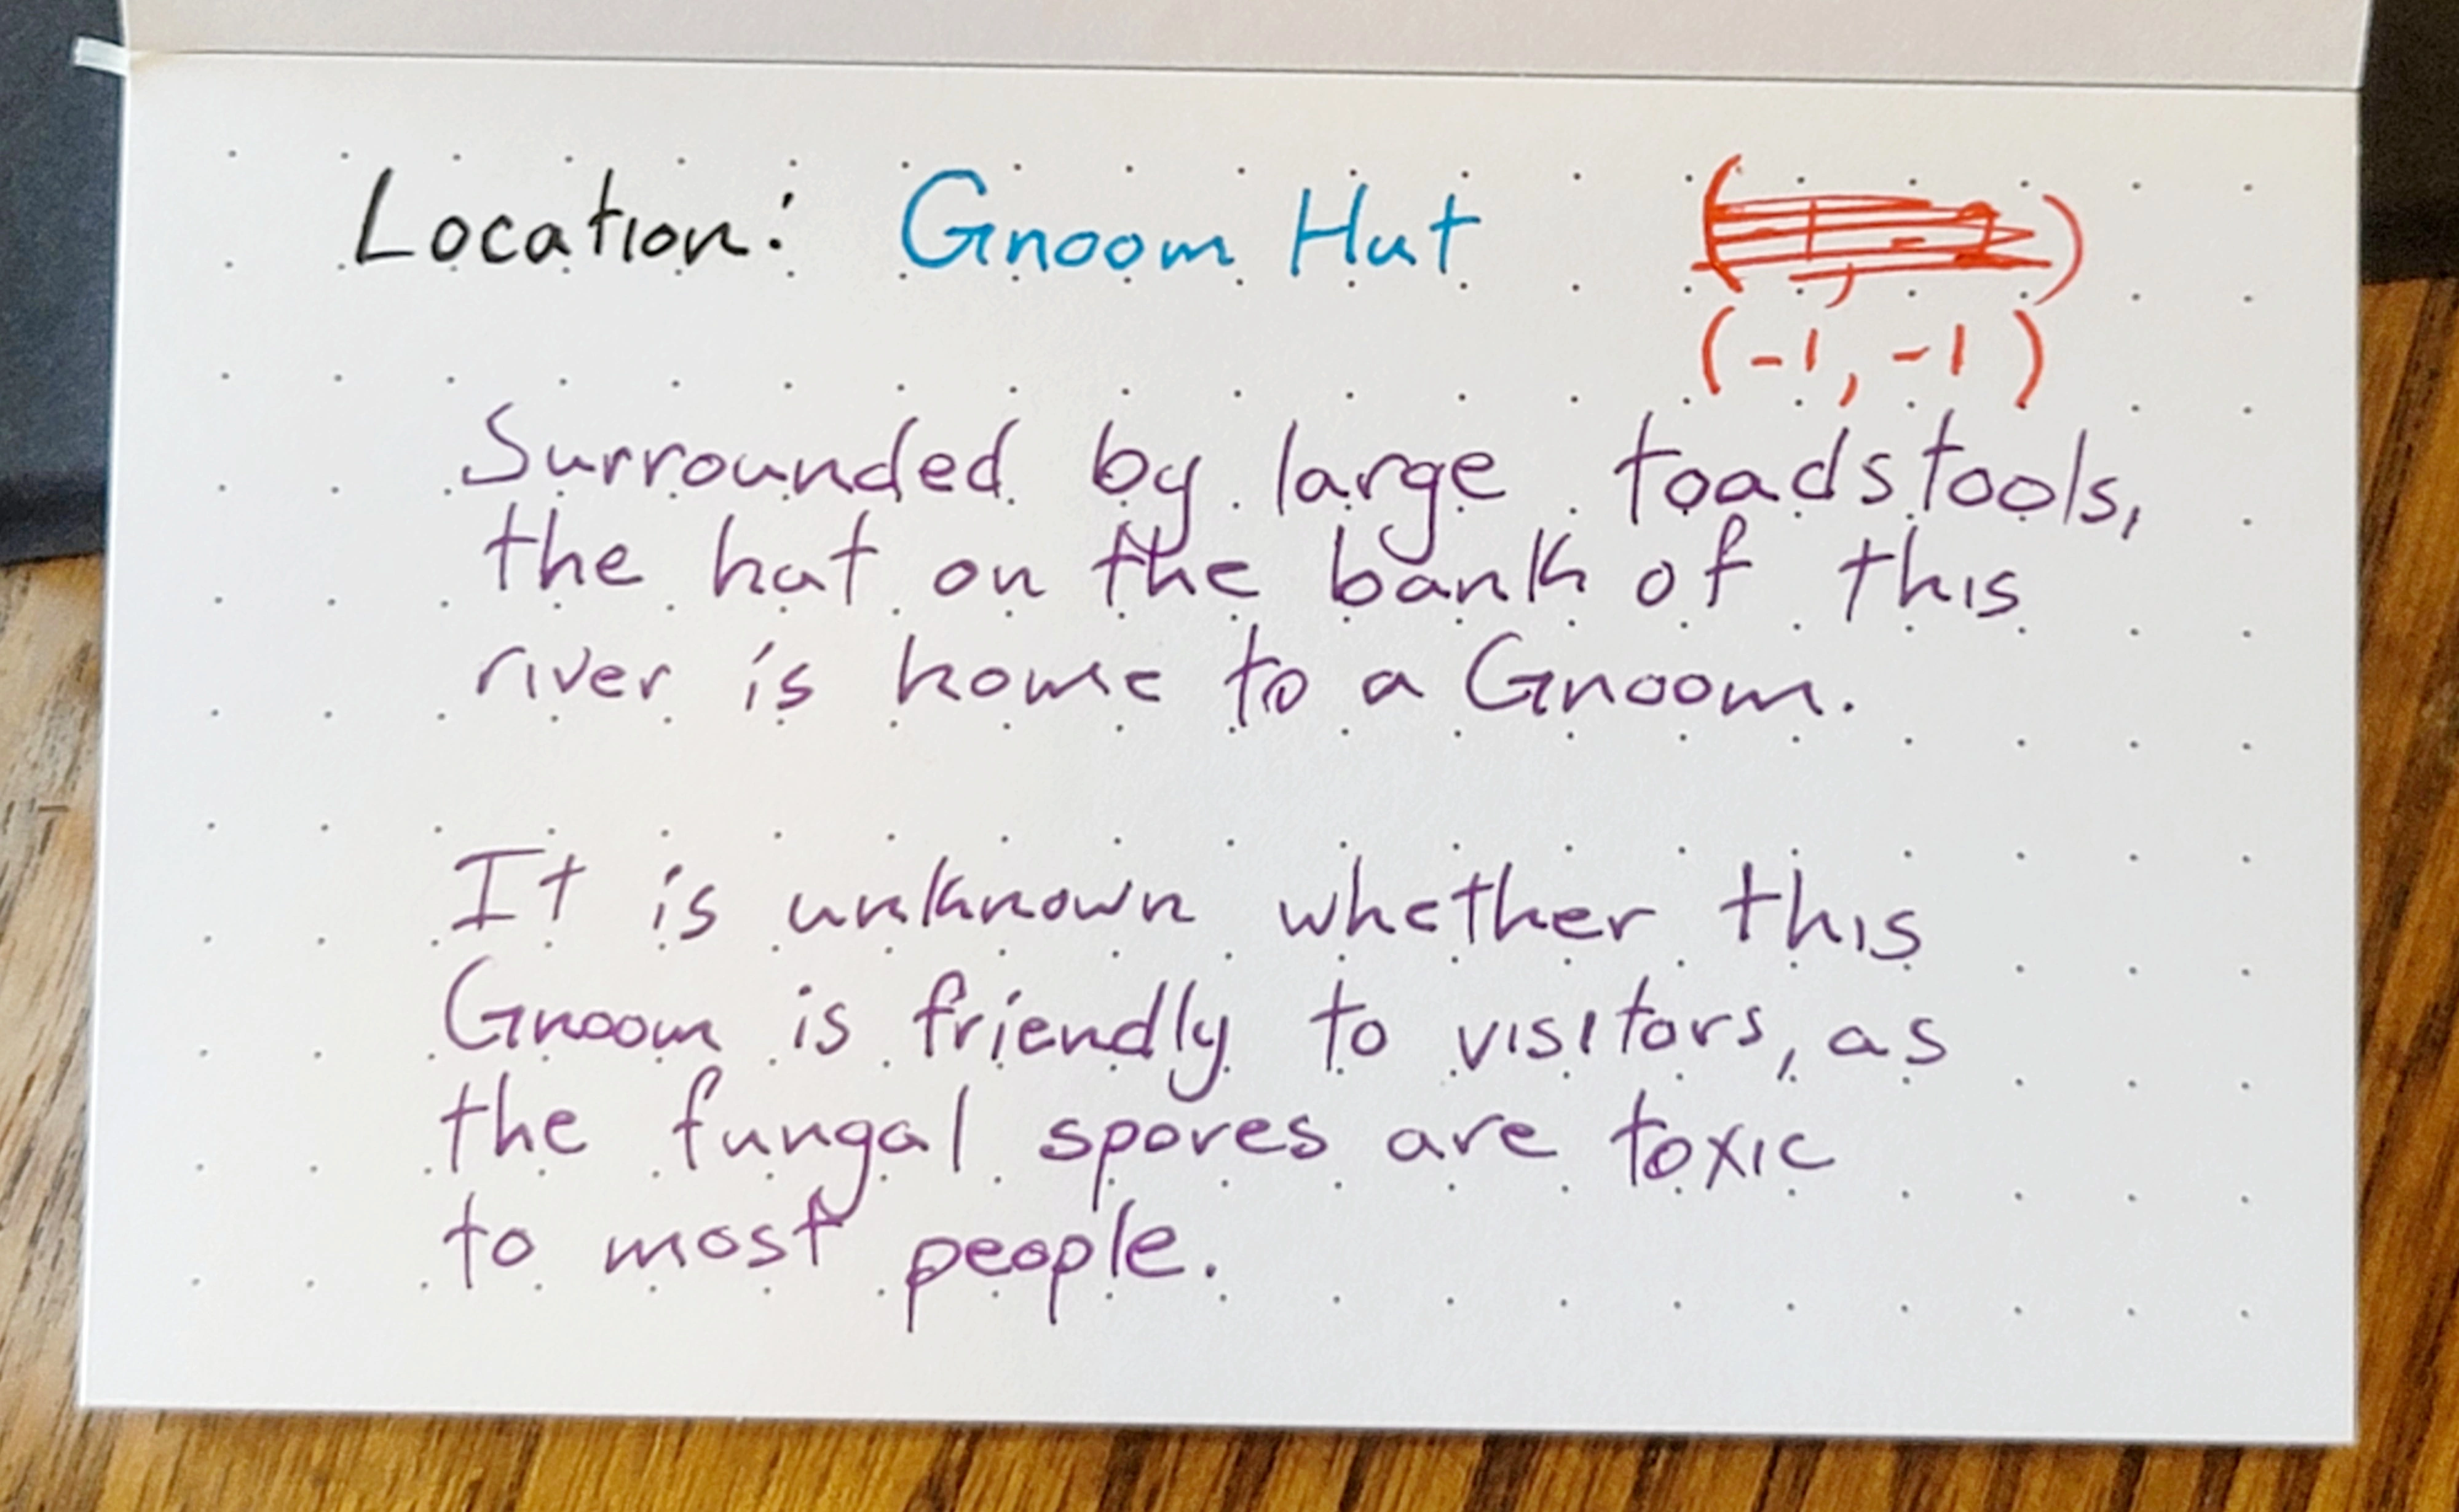 Location: Gnoom Hut
(-1, -1)
Surrounded by large toadstools,
the hut on the bank of this
river is home to a Gnoom.
It is unknown whether this
Gnoom is friendly to visitors, as
the fungal spores are toxic
to most people.